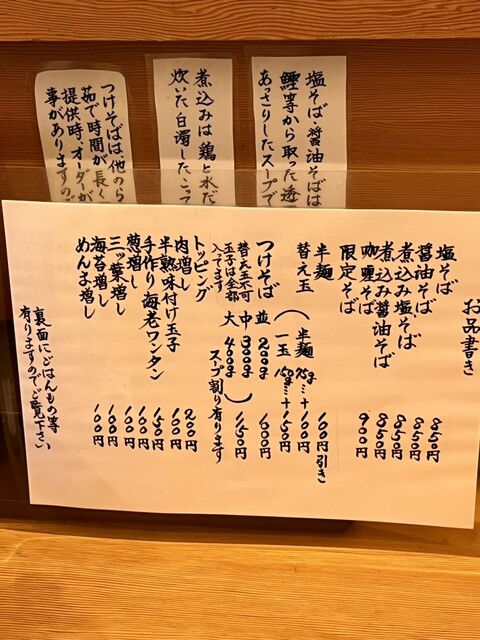 塩そば・醤油そばは
鰹等から取った透
あっさりしたスープで
煮込みは鶏と水だ
炊いた白濁したこって
つけそばは他のら
茹で時間が長く
提供時、オーダーが
事がありますので
お品書き
塩そば 850円
醤油そば 850円
煮込み塩そば 850円
煮込み醤油そば 850円
咖喱そば 900円
限定そば
半麺 100円引き
替え玉
(半麺 75g…+100円
一玉 150g…+150円
つけそば 並 200g 600円
中 300g
大 400g) 150円
替え玉不可
玉子は全部
入ってます
スープ割り有ります
トッピング
肉増し 200円
半熟味付け玉子 100円
手作り海老ワンタン 150円
葱増し 100円
三ッ葉増し 100円
海苔増し 100円
めんま増し 100円
裏面にごはんもの等
有りますのでご覧下さい